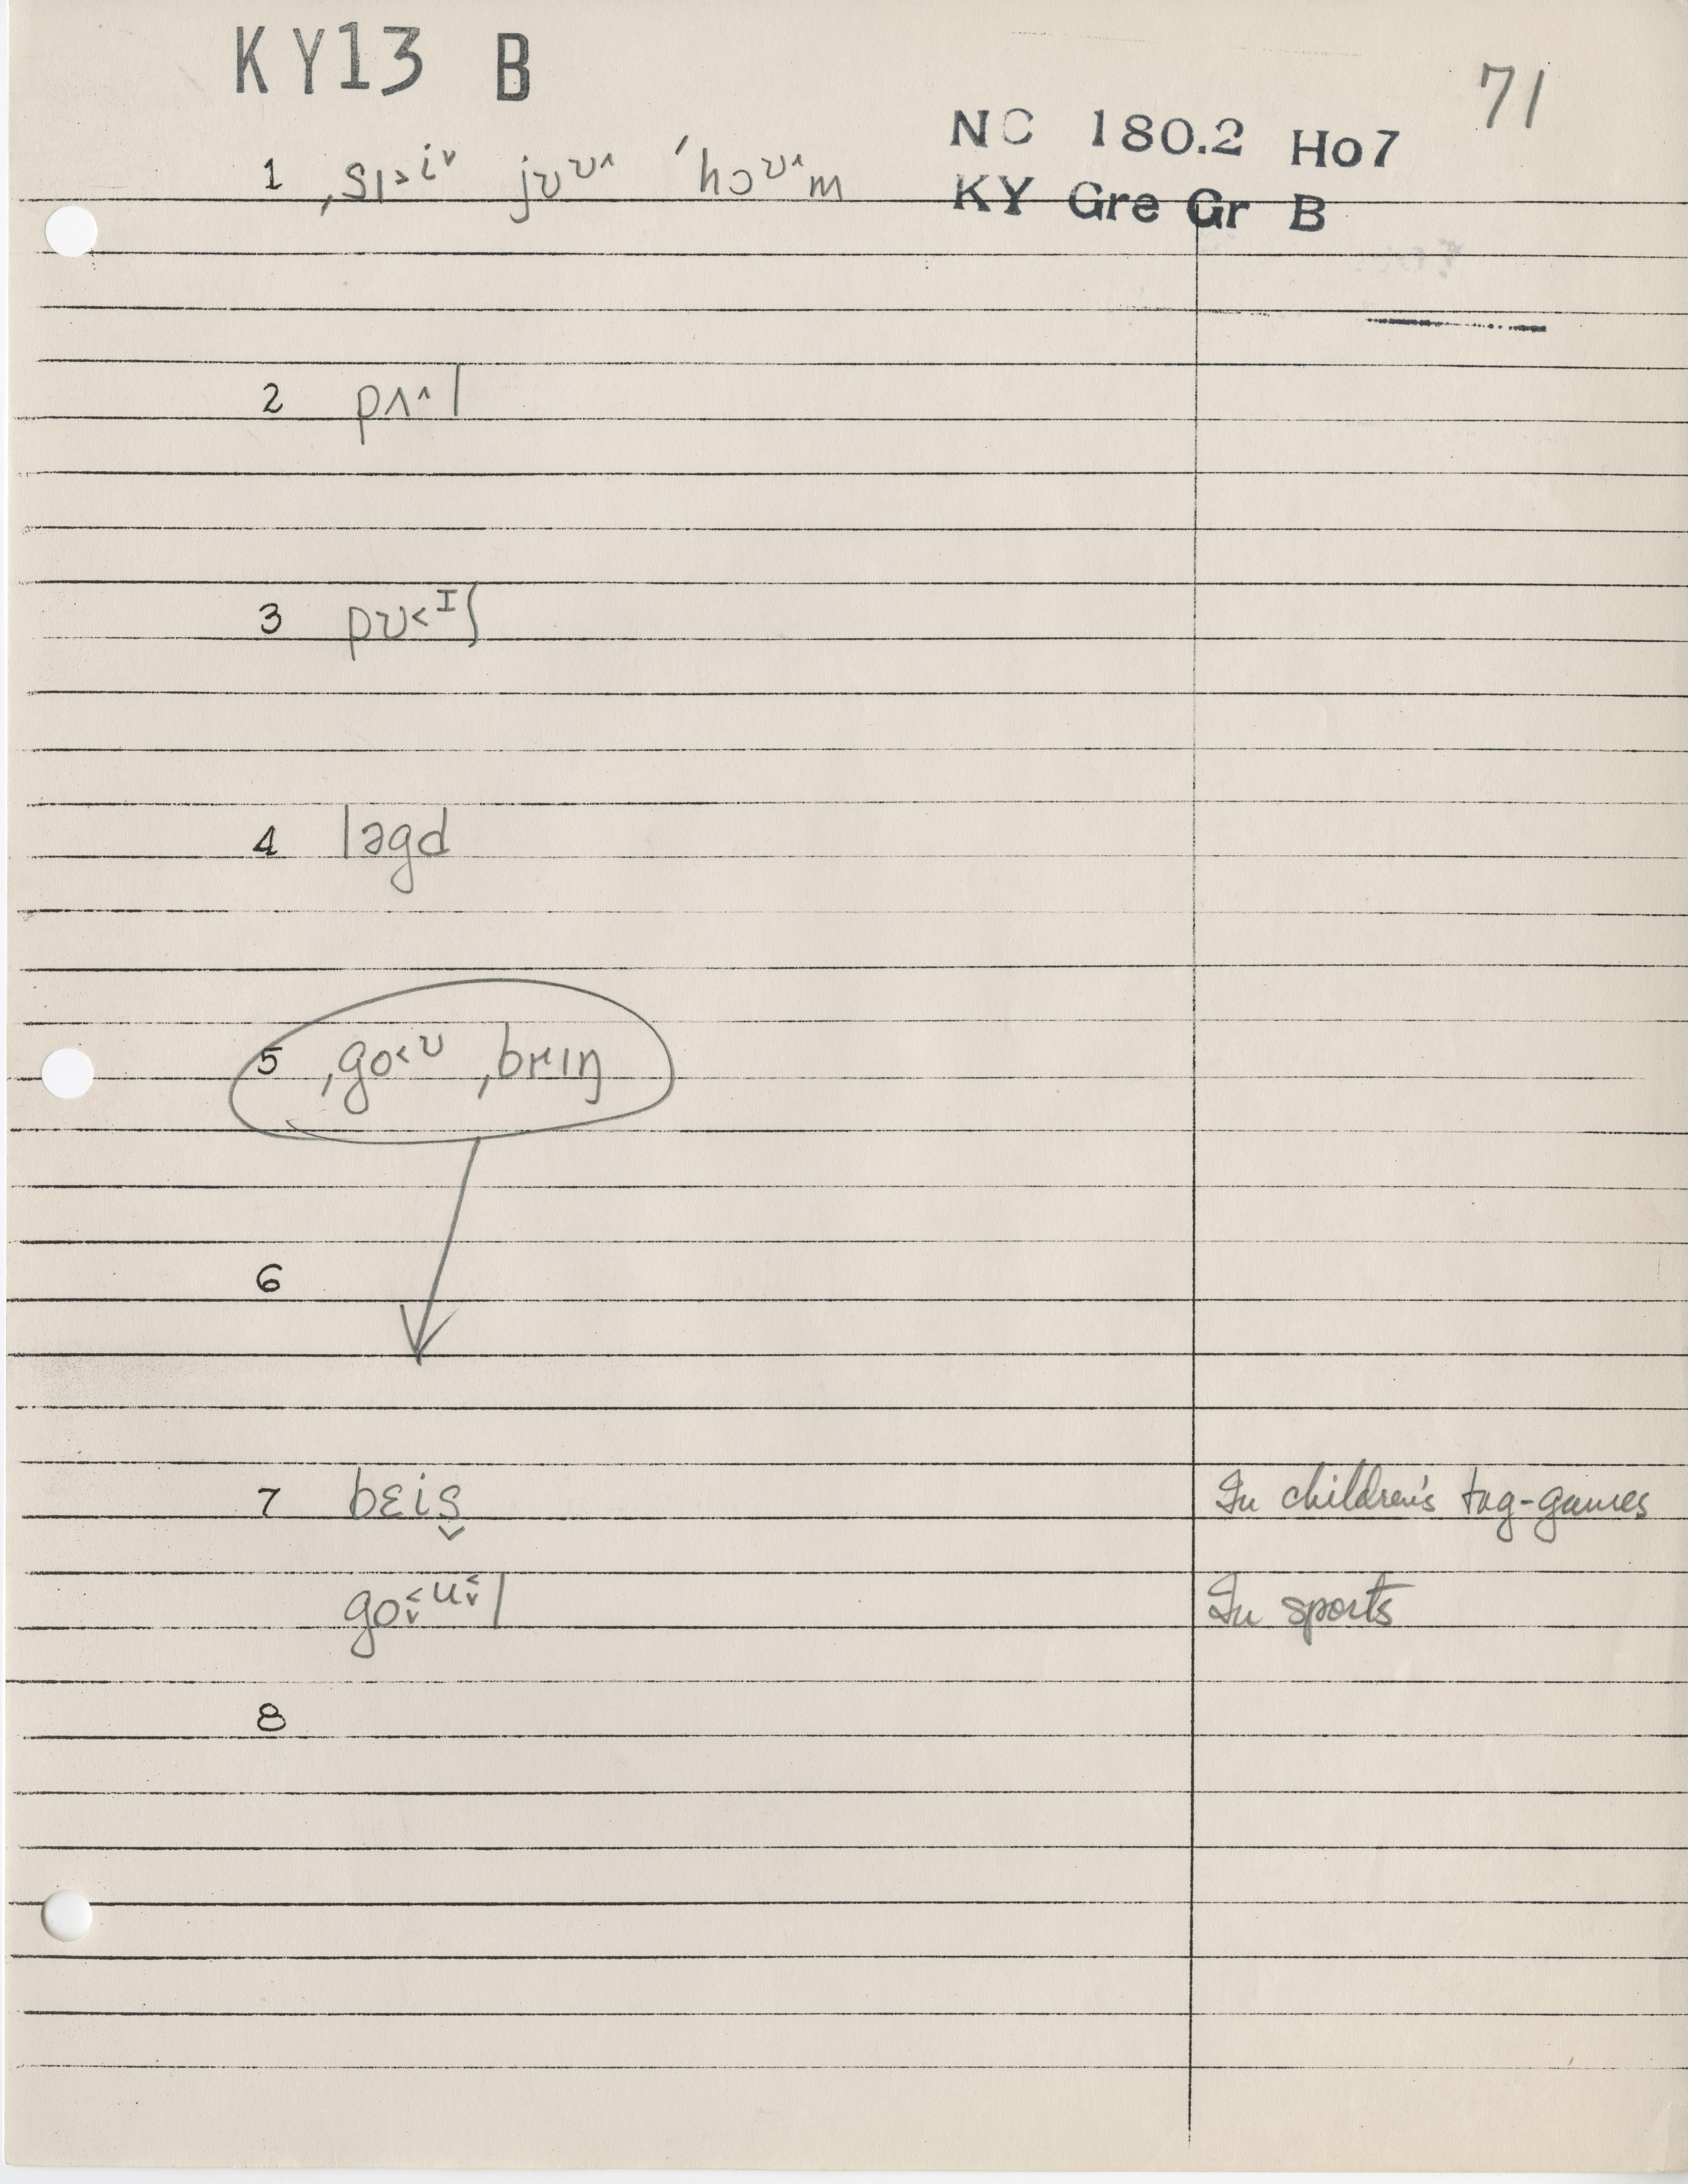 KY13 B
71
NC 180.2 Ho7
1 ˌsɪ˃iᵛ jʊʊ^ ˈhɔʊ^m
KY Gre Gr B
2 pʌ^l
3 pʊ˂ᴵʃ
4 lɘgd
5 ˌgo˂ʊ ˌbrɪŋ
6
7 bɛis̬ In children's tag-games
go˂˅u˂˅l In sports
8